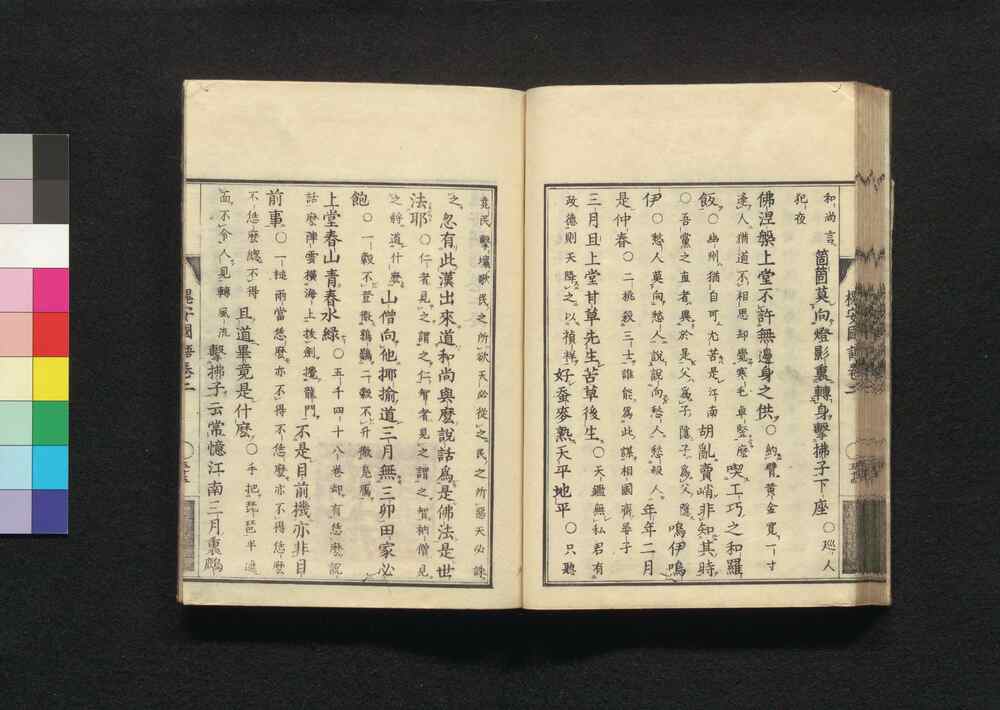 和尚言。箇箇莫向燈影裏轉身擊拂子下座○巡人
犯夜
佛涅槃上堂不許無邊身之供。○納臂黃金寬一寸
逢人猶道不相思却覺寒毛卓豎麽喫工巧之和羅
飯。○幽州猶自可尤苦是江南胡亂賣峭非知其時
○吾黨之直者異於是父爲子隱子爲父隱。嗚伊嗚
伊○愁人莫向愁人說說向愁人愁殺人。年年二月
是仲春○二桃殺三士誰能爲此謀相國齊晏子
三月旦上堂甘草先生苦草後生。○天鑑無私君有
政德則天降之以禎祥好蚕麥熟天平地平○只聽
堯民擊壤歌民之所欲天必從之民之所惡天必誅
之。忽有此漢出來道和尚與麽說話爲是佛法是世
法耶○仁者見之謂之仁智者見之謂之智衲僧見
之將道什麽山僧向他揶揄道三月無三卯田家必
飽。○一彀不登徹鶉鷃二彀不升徹鳧鴈
上堂春山青春水綠○五千四十八卷却有恁麽說
話麽陣雲橫海上拔劍攪龍門不是目前機亦非目
前事○一槌兩當恁麽亦不得不恁麽亦不得恁麽
不恁麽總不得且道畢竟是什麽○手把琵琶半遮
面不令人見轉風流擊拂子云常憶江南三月裏鷓
槐安國語卷二